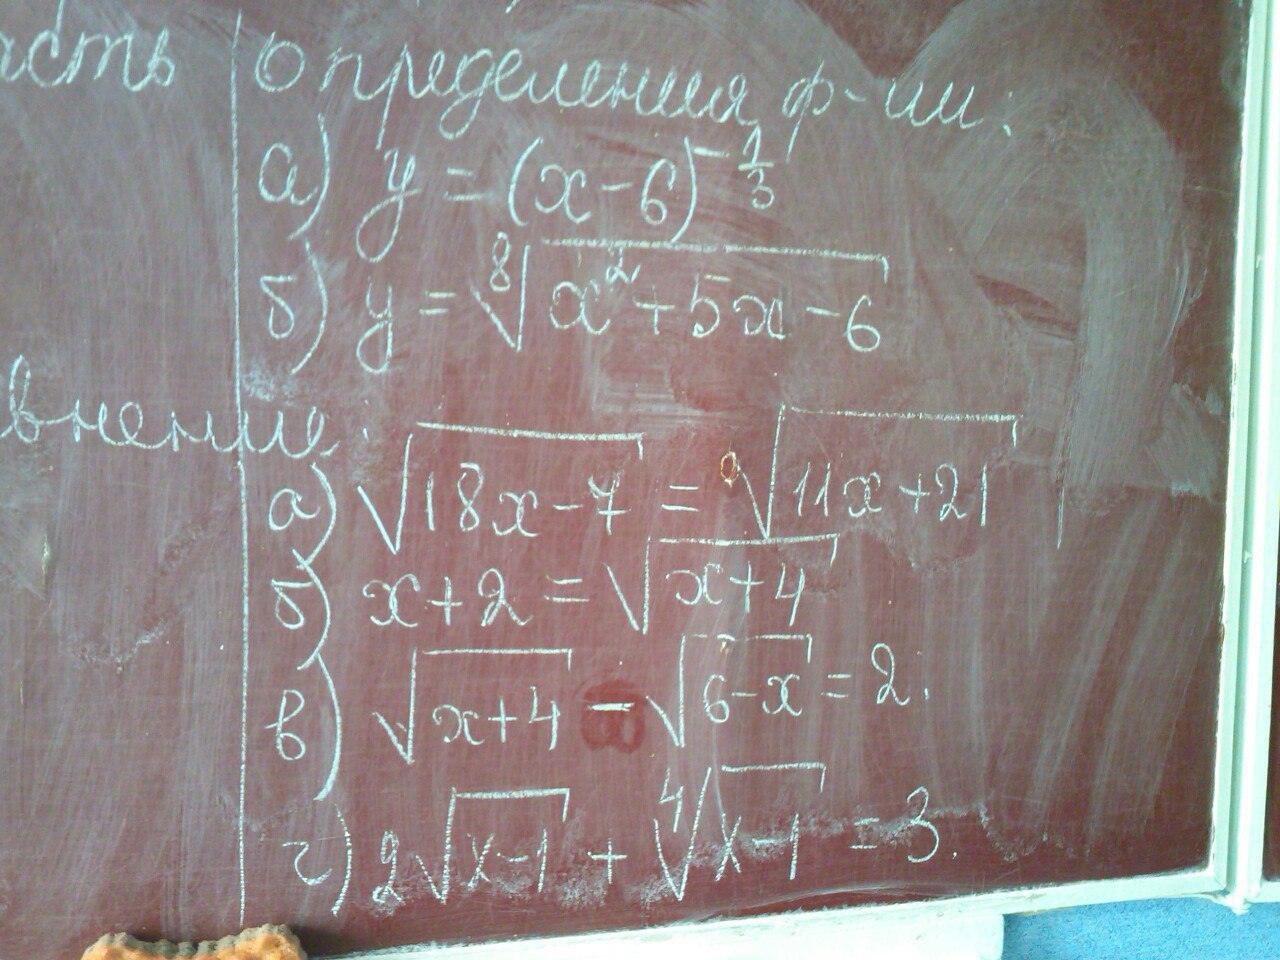 асть определения ф-ии:
а) y = (x-6)^{-\frac{1}{3}}
б) y = \sqrt[8]{x^2+5x-6}
внение
а) \sqrt{18x-7} = \sqrt{11x+21}
б) x+2 = \sqrt{x+4}
в) \sqrt{x+4} - \sqrt{6-x} = 2.
г) 2\sqrt{x-1} + \sqrt[4]{x-1} = 3.